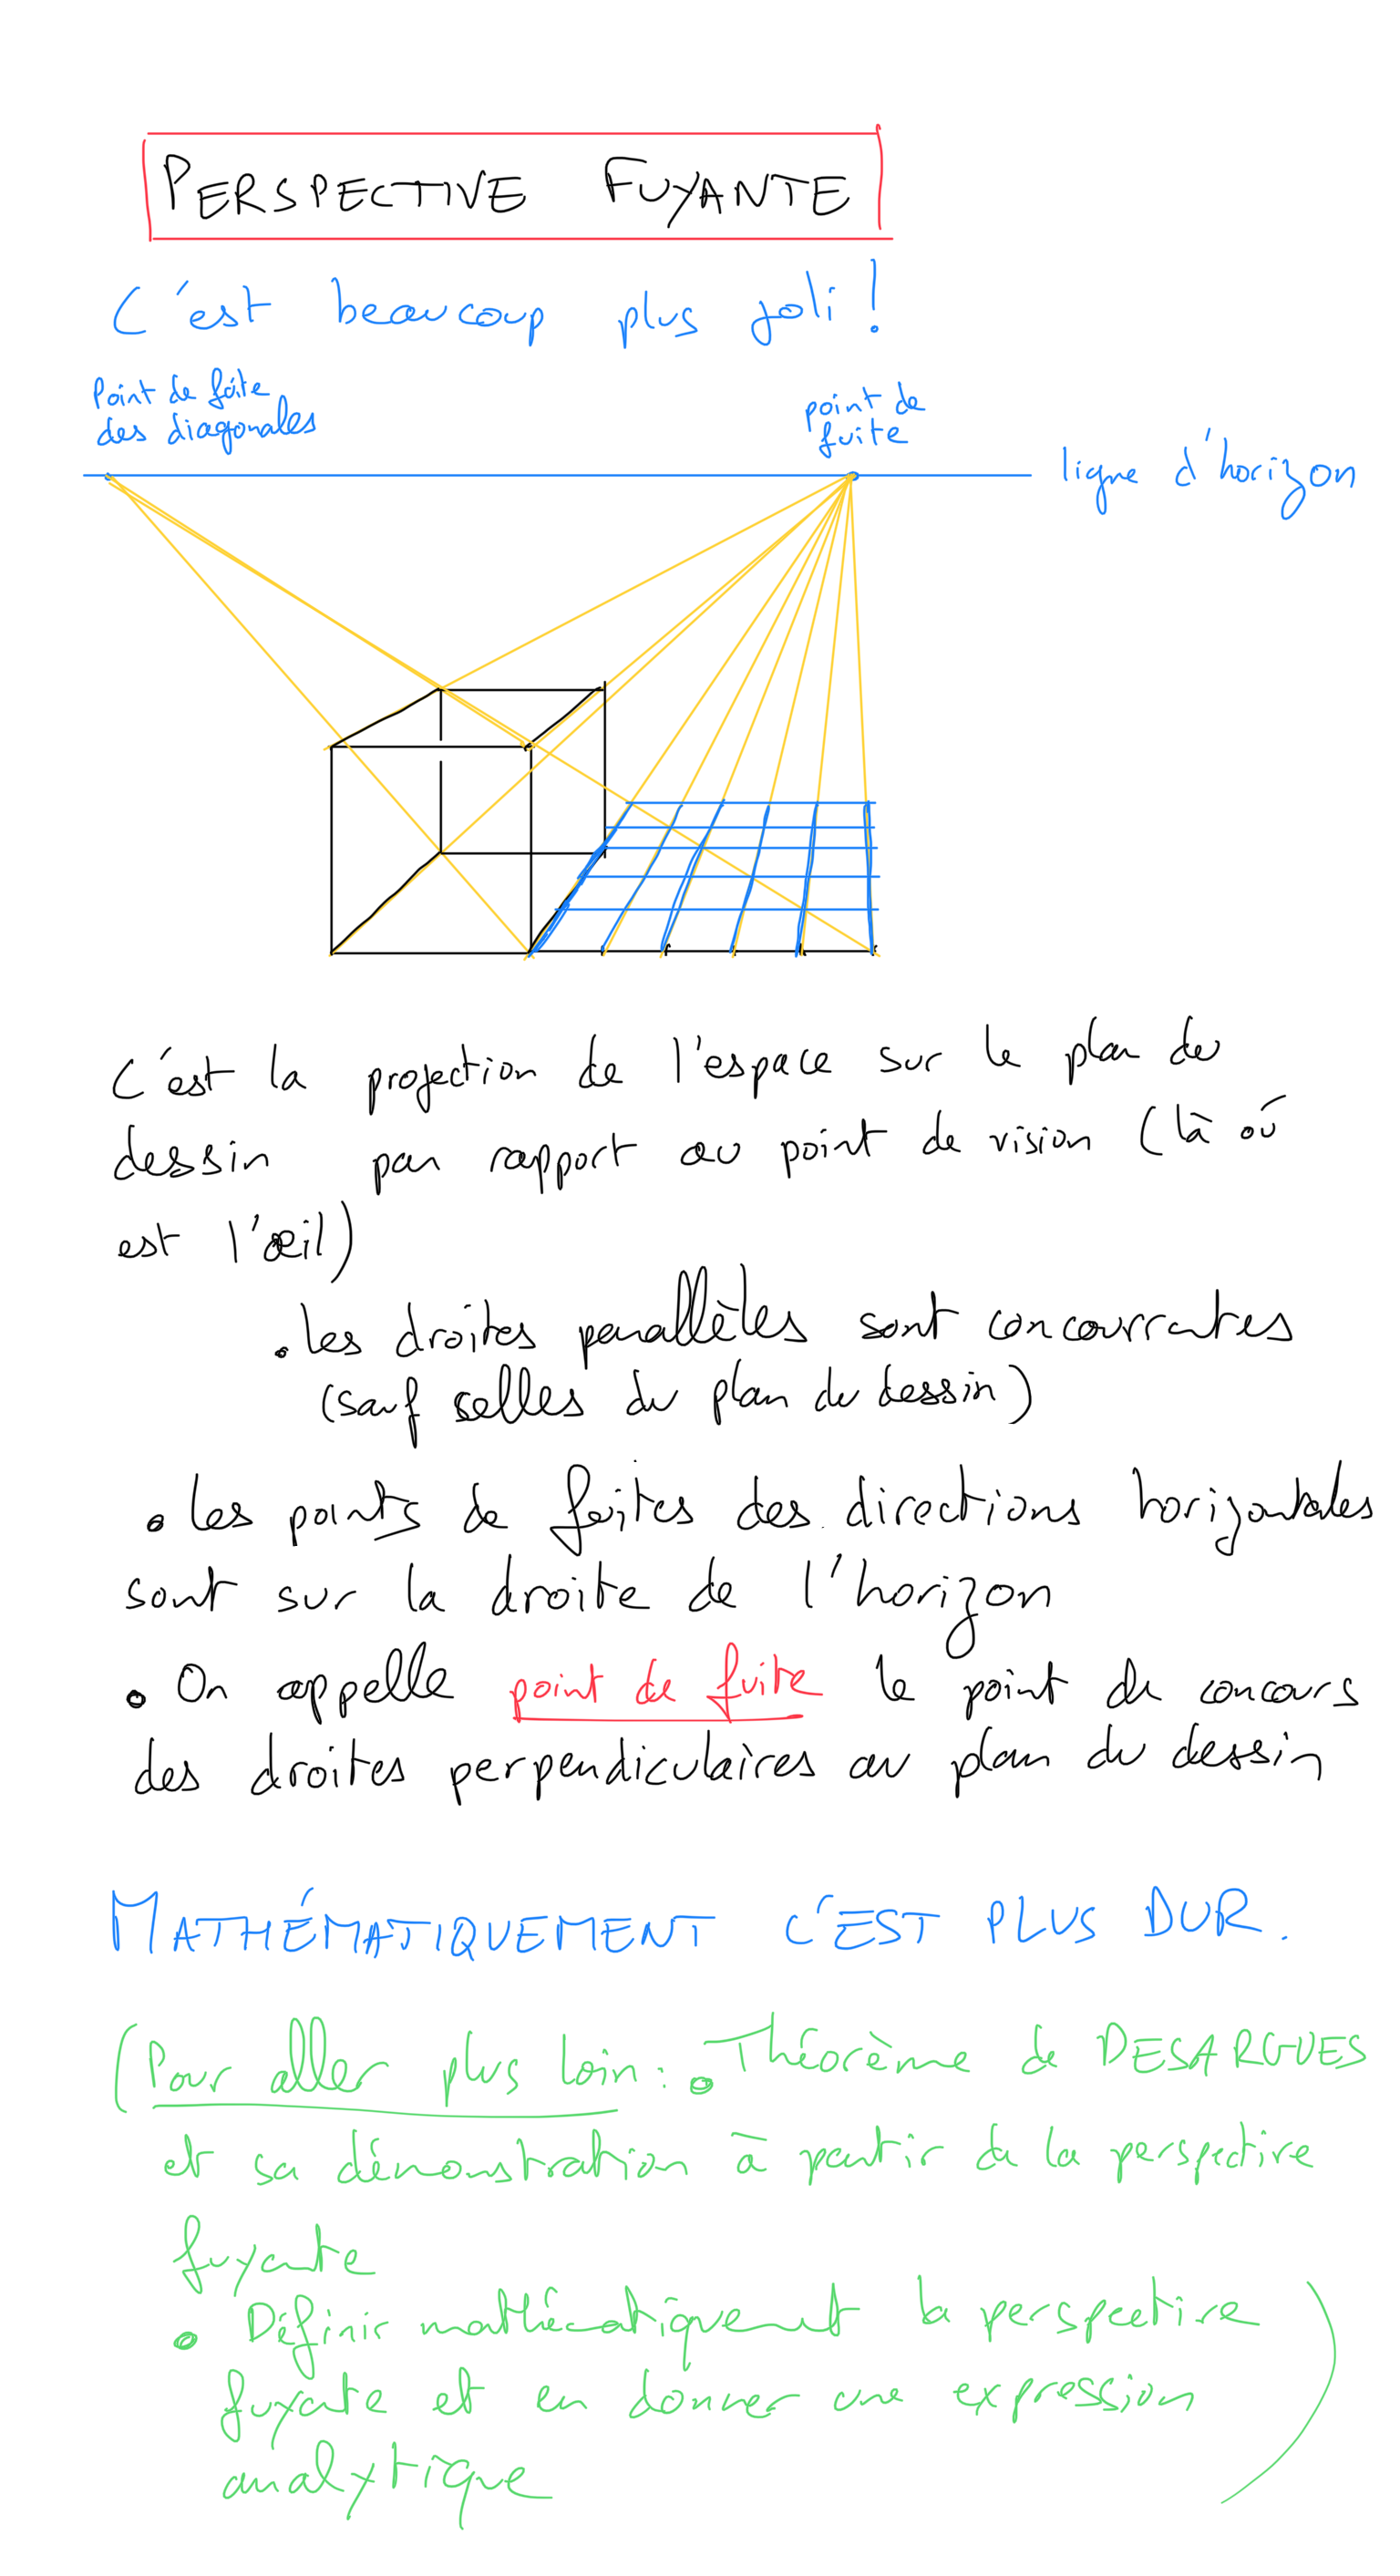 PERSPECTIVE FUYANTE
C'est beaucoup plus joli!
Point de fuite
des diagonales
point de
fuite
ligne d'horizon
C'est la projection de l'espace sur le plan de
dessin par rapport au point de vision (là où
est l'œil)
. les droites parallèles sont concourrantes
(sauf selles du plan de dessin)
. Les points de fuites des directions horizontales
sont sur la droite de l'horizon
. On appelle point de fuite le point de concours
des droites perpendiculaires au plan du dessin
MATHÉMATIQUEMENT C'EST PLUS DUR.
(Pour aller plus loin: . Théorème de DESARGUES
et sa démonstration à partir de la perspective
fuyante
. Définir mathématiquement la perspective
fuyante et en donner une expression
analytique )